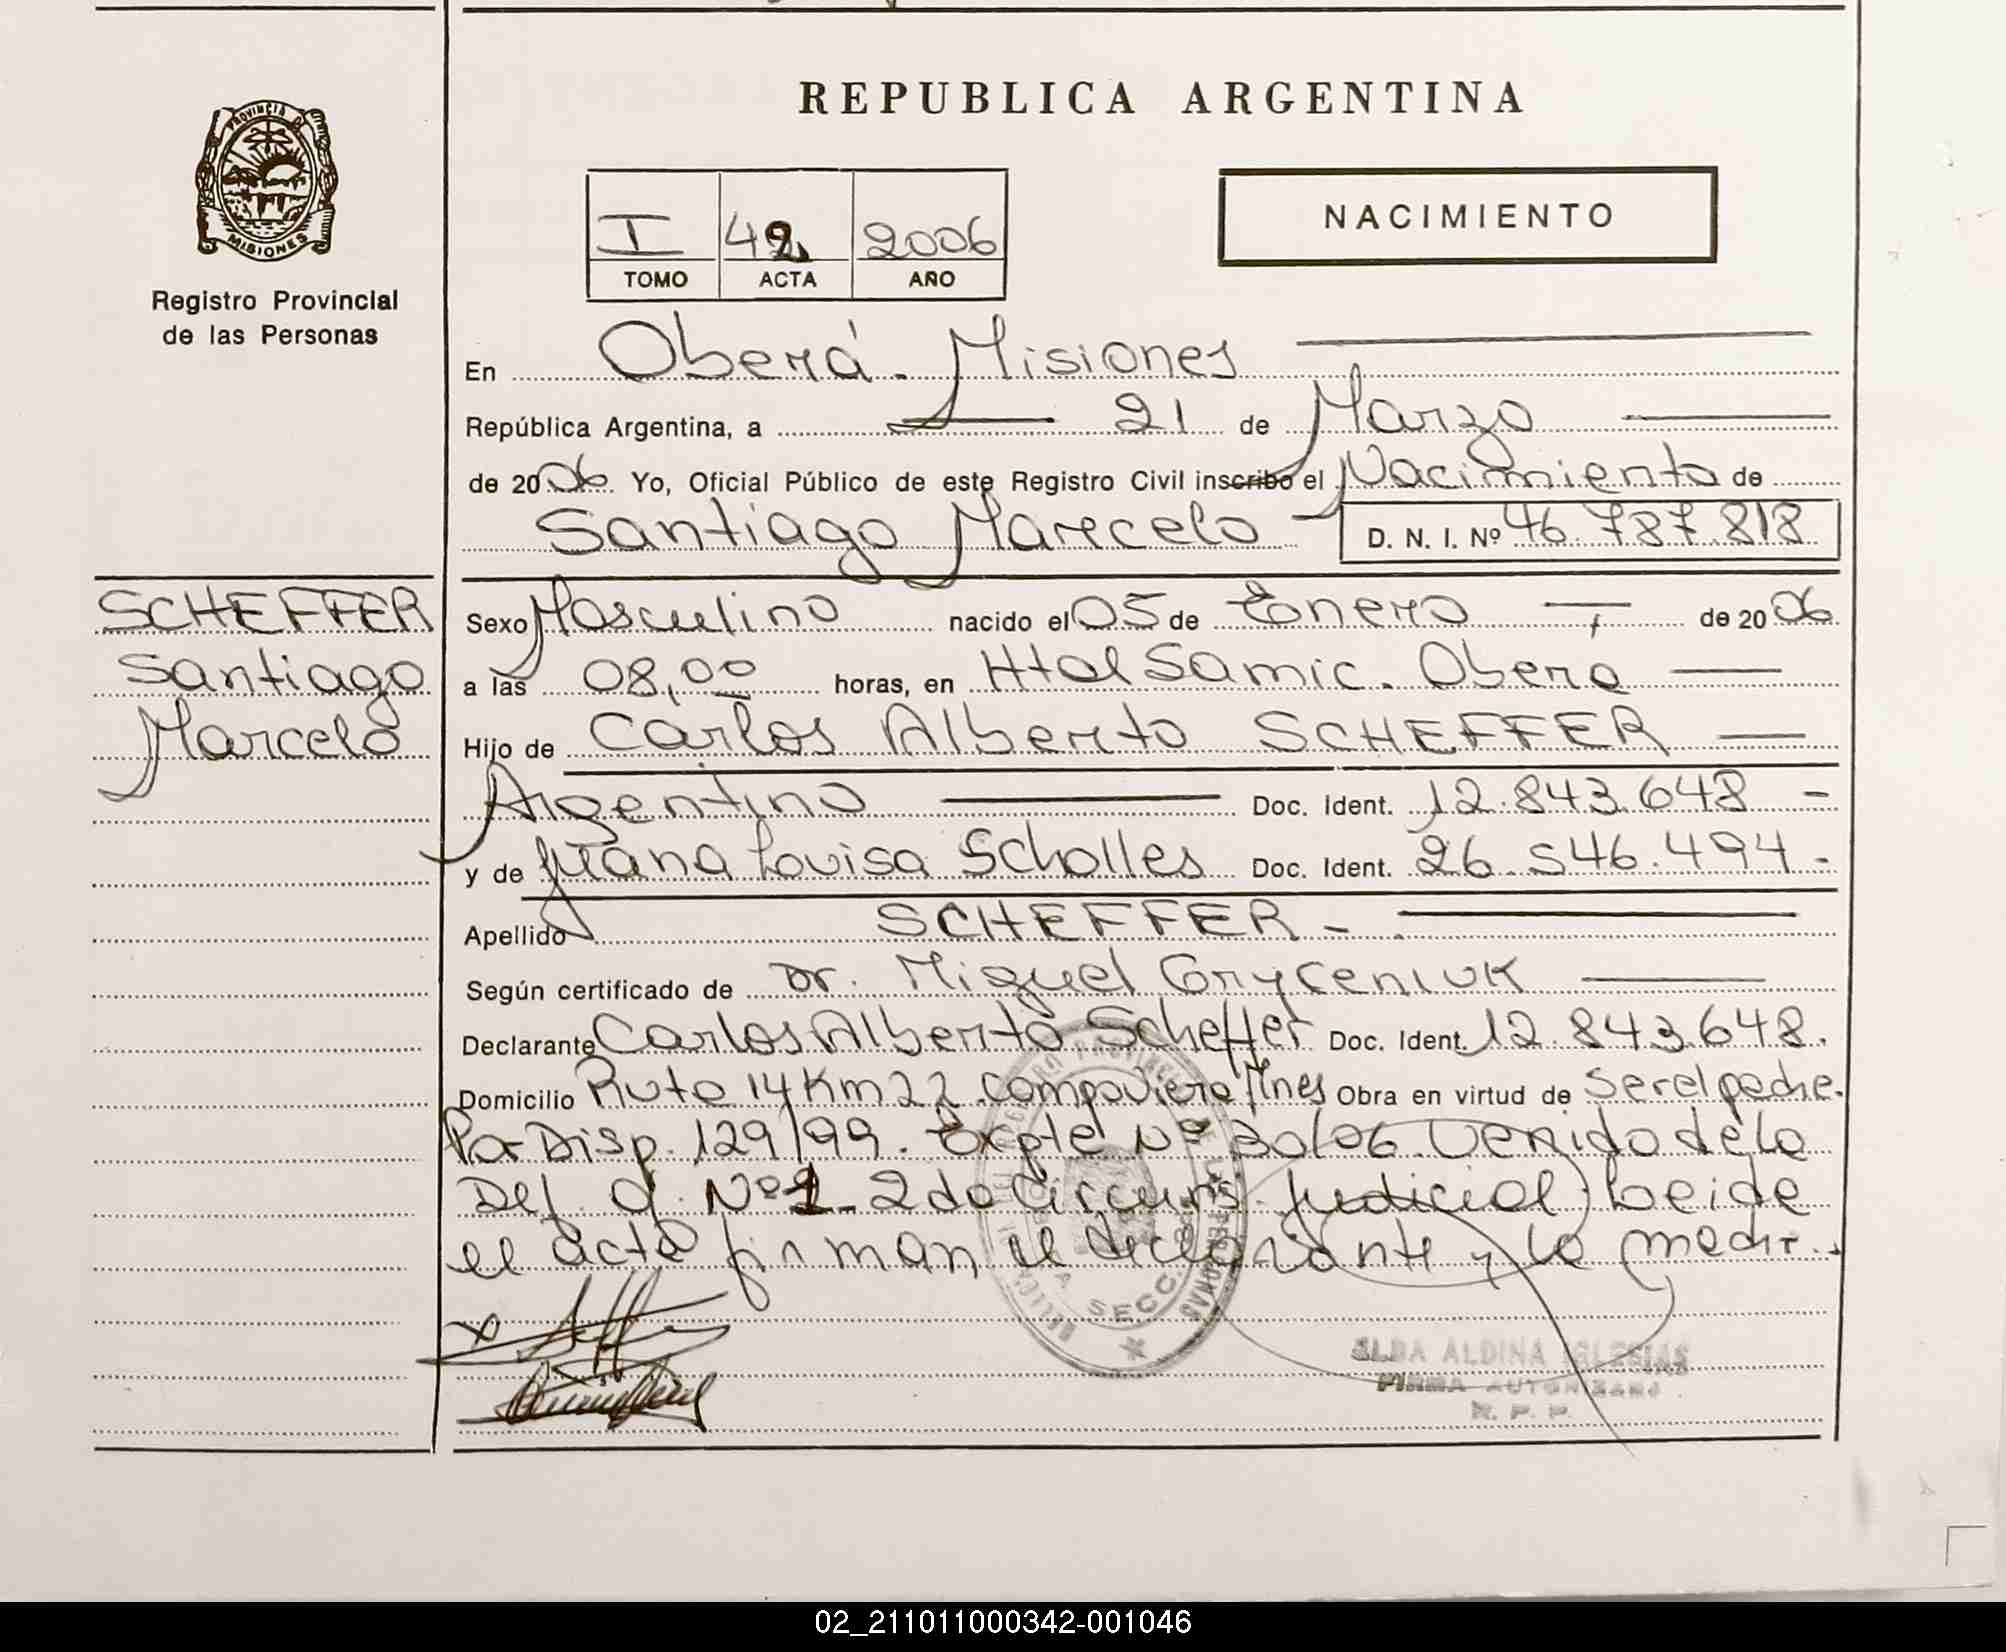 REPUBLICA ARGENTINA
PROVINCIA DE
MISIONES
Registro Provincial
de las Personas
NACIMIENTO
I 42 2006
TOMO ACTA AÑO
En Oberá - Misiones
República Argentina, a 21 de Marzo
de 2006 Yo, Oficial Público de este Registro Civil inscribo el Nacimiento de
Santiago Marcelo D. N. I. Nº 46.787.818
SCHEFFER
Santiago
Marcelo
Sexo Masculino nacido el 05 de Enero de 2006
a las 08,00 horas, en Htal Samic. Obera
Hijo de Carlos Alberto SCHEFFER
Argentino Doc. Ident. 12.843.648 -
y de Juana Lovisa Scholles Doc. Ident. 26.546.494 -
Apellido SCHEFFER -
Según certificado de Dr. Miguel Gryceniuk
Declarante Carlos Alberto Scheffer Doc. Ident. 12.843.648.
Domicilio Ruta 14 Km 22 Mnes Obra en virtud de Ser el padre.
Por Disp. 129/99. Expte Nº 30/06. Venido de la
Def. Of. Nº 1 - 2do Circuns. Judicial Leida
el acta firman el declarante y la madre.
ELBA ALDINA IGLESIAS
FIRMA AUTORIZADA
R. P. P.
SECC.
02_211011000342-001046